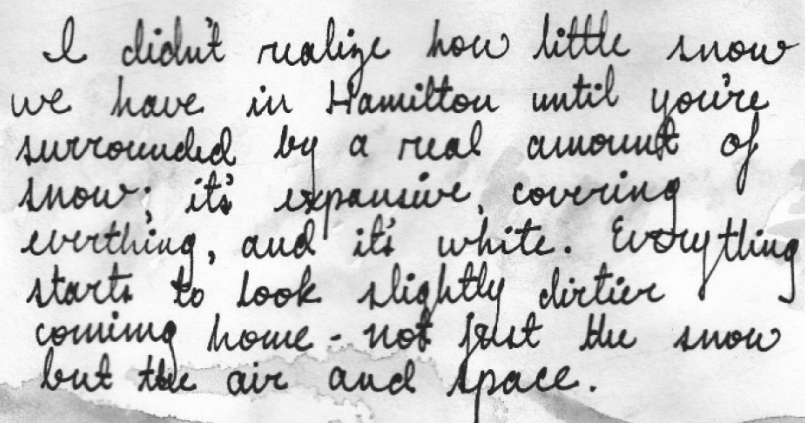 I didn't realize how little snow
we have in Hamilton until you're
surrounded by a real amount of
snow; it's expansive, covering
everthing, and it's white. Everything
starts to look slightly dirtier
coming home - not just the snow
but the air and space.